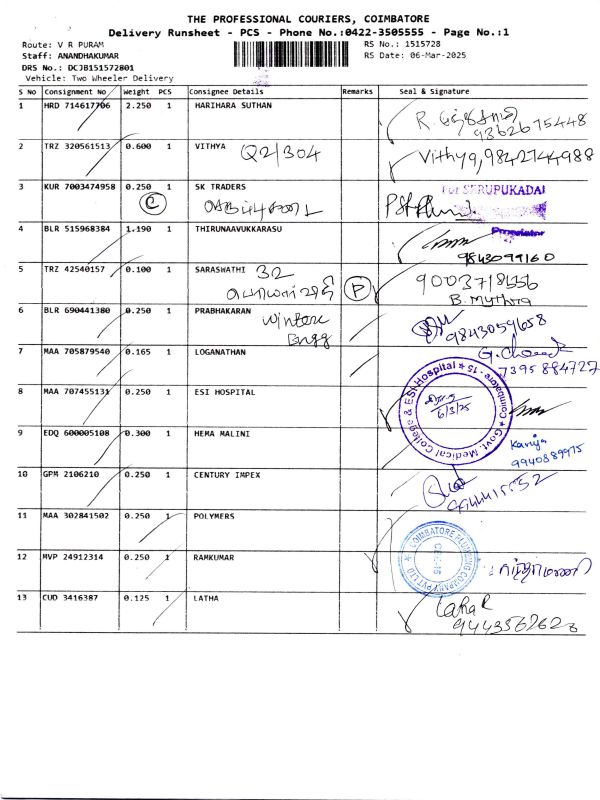 THE PROFESSIONAL COURIERS, COIMBATORE
Delivery Runsheet - PCS - Phone No.:0422-3505555 - Page No.:1
Route: V R PURAM
RS No.: 1515728
Staff: ANANDHAKUMAR
RS Date: 06-Mar-2025
DRS No.: DCJB151572801
Vehicle: Two Wheeler Delivery
S No Consignment No Weight PCS Consignee Details Remarks Seal & Signature
1 HRD 714617706 2.250 1 HARIHARA SUTHAN
9362675448
2 TRZ 320561513 0.600 1 VITHYA Q2/304 Vithya, 9842744988
3 KUR 7003474958 0.250 1 SK TRADERS
C
For SERUPUKADAI
Proprietor
4 BLR 515968384 1.190 1 THIRUNAAVUKKARASU
9843099160
5 TRZ 42540157 0.100 1 SARASWATHI 32 P
9003718556
B. Mythra
6 BLR 690441380 0.250 1 PRABHAKARAN
9843059658
7 MAA 705879540 0.165 1 LOGANATHAN
7395884727
8 MAA 707455131 0.250 1 ESI HOSPITAL
Govt. Medical College & ESI Hospital Coimbatore - 15
6/3/25
9 EDQ 600005108 0.300 1 HEMA MALINI
Kaniya
9940889975
10 GPM 2106210 0.250 1 CENTURY IMPEX
11 MAA 302841502 0.250 1 POLYMERS
12 MVP 24912314 0.250 1 RAMKUMAR
13 CUD 3416387 0.125 1 LATHA
Latha R